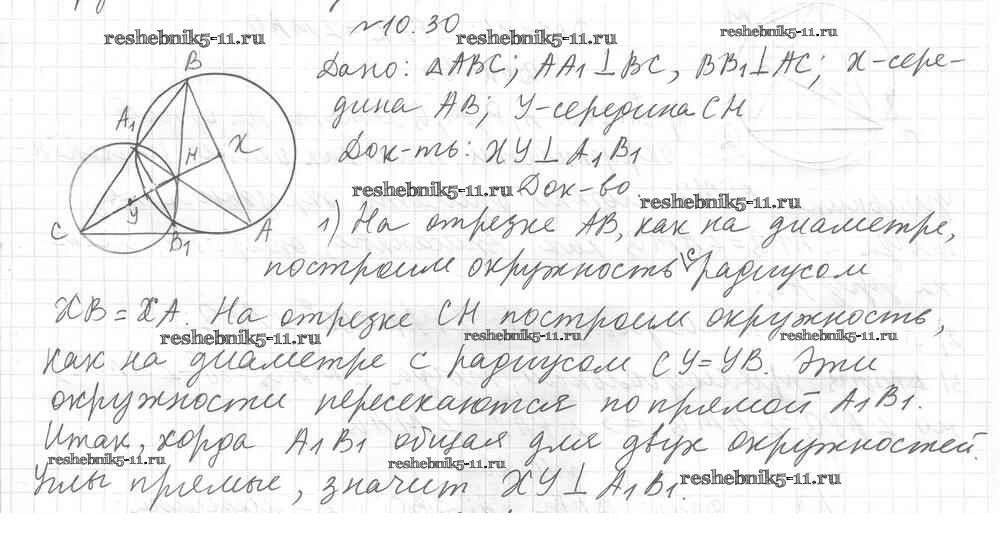 №10.30
reshebnik5-11.ru reshebnik5-11.ru reshebnik5-11.ru
Дано: △ABC; AA₁⊥BC, BB₁⊥AC; X-сере-
дина AB; Y-середина CH
Док-ть: XY⊥A₁B₁
reshebnik5-11.ru Док-во reshebnik5-11.ru
B
A₁
H
X
Y
C
B₁
A
1) На отрезке AB, как на диаметре,
построим окружность с радиусом
XB=XA. На отрезке CH построим окружность,
reshebnik5-11.ru reshebnik5-11.ru reshebnik5-11.ru
как на диаметре с радиусом CY=YB. Эти
окружности пересекаются по прямой A₁B₁.
Итак, хорда A₁B₁ общая для двух окружностей.
reshebnik5-11.ru reshebnik5-11.ru reshebnik5-11.ru
Углы прямые, значит XY⊥A₁B₁.